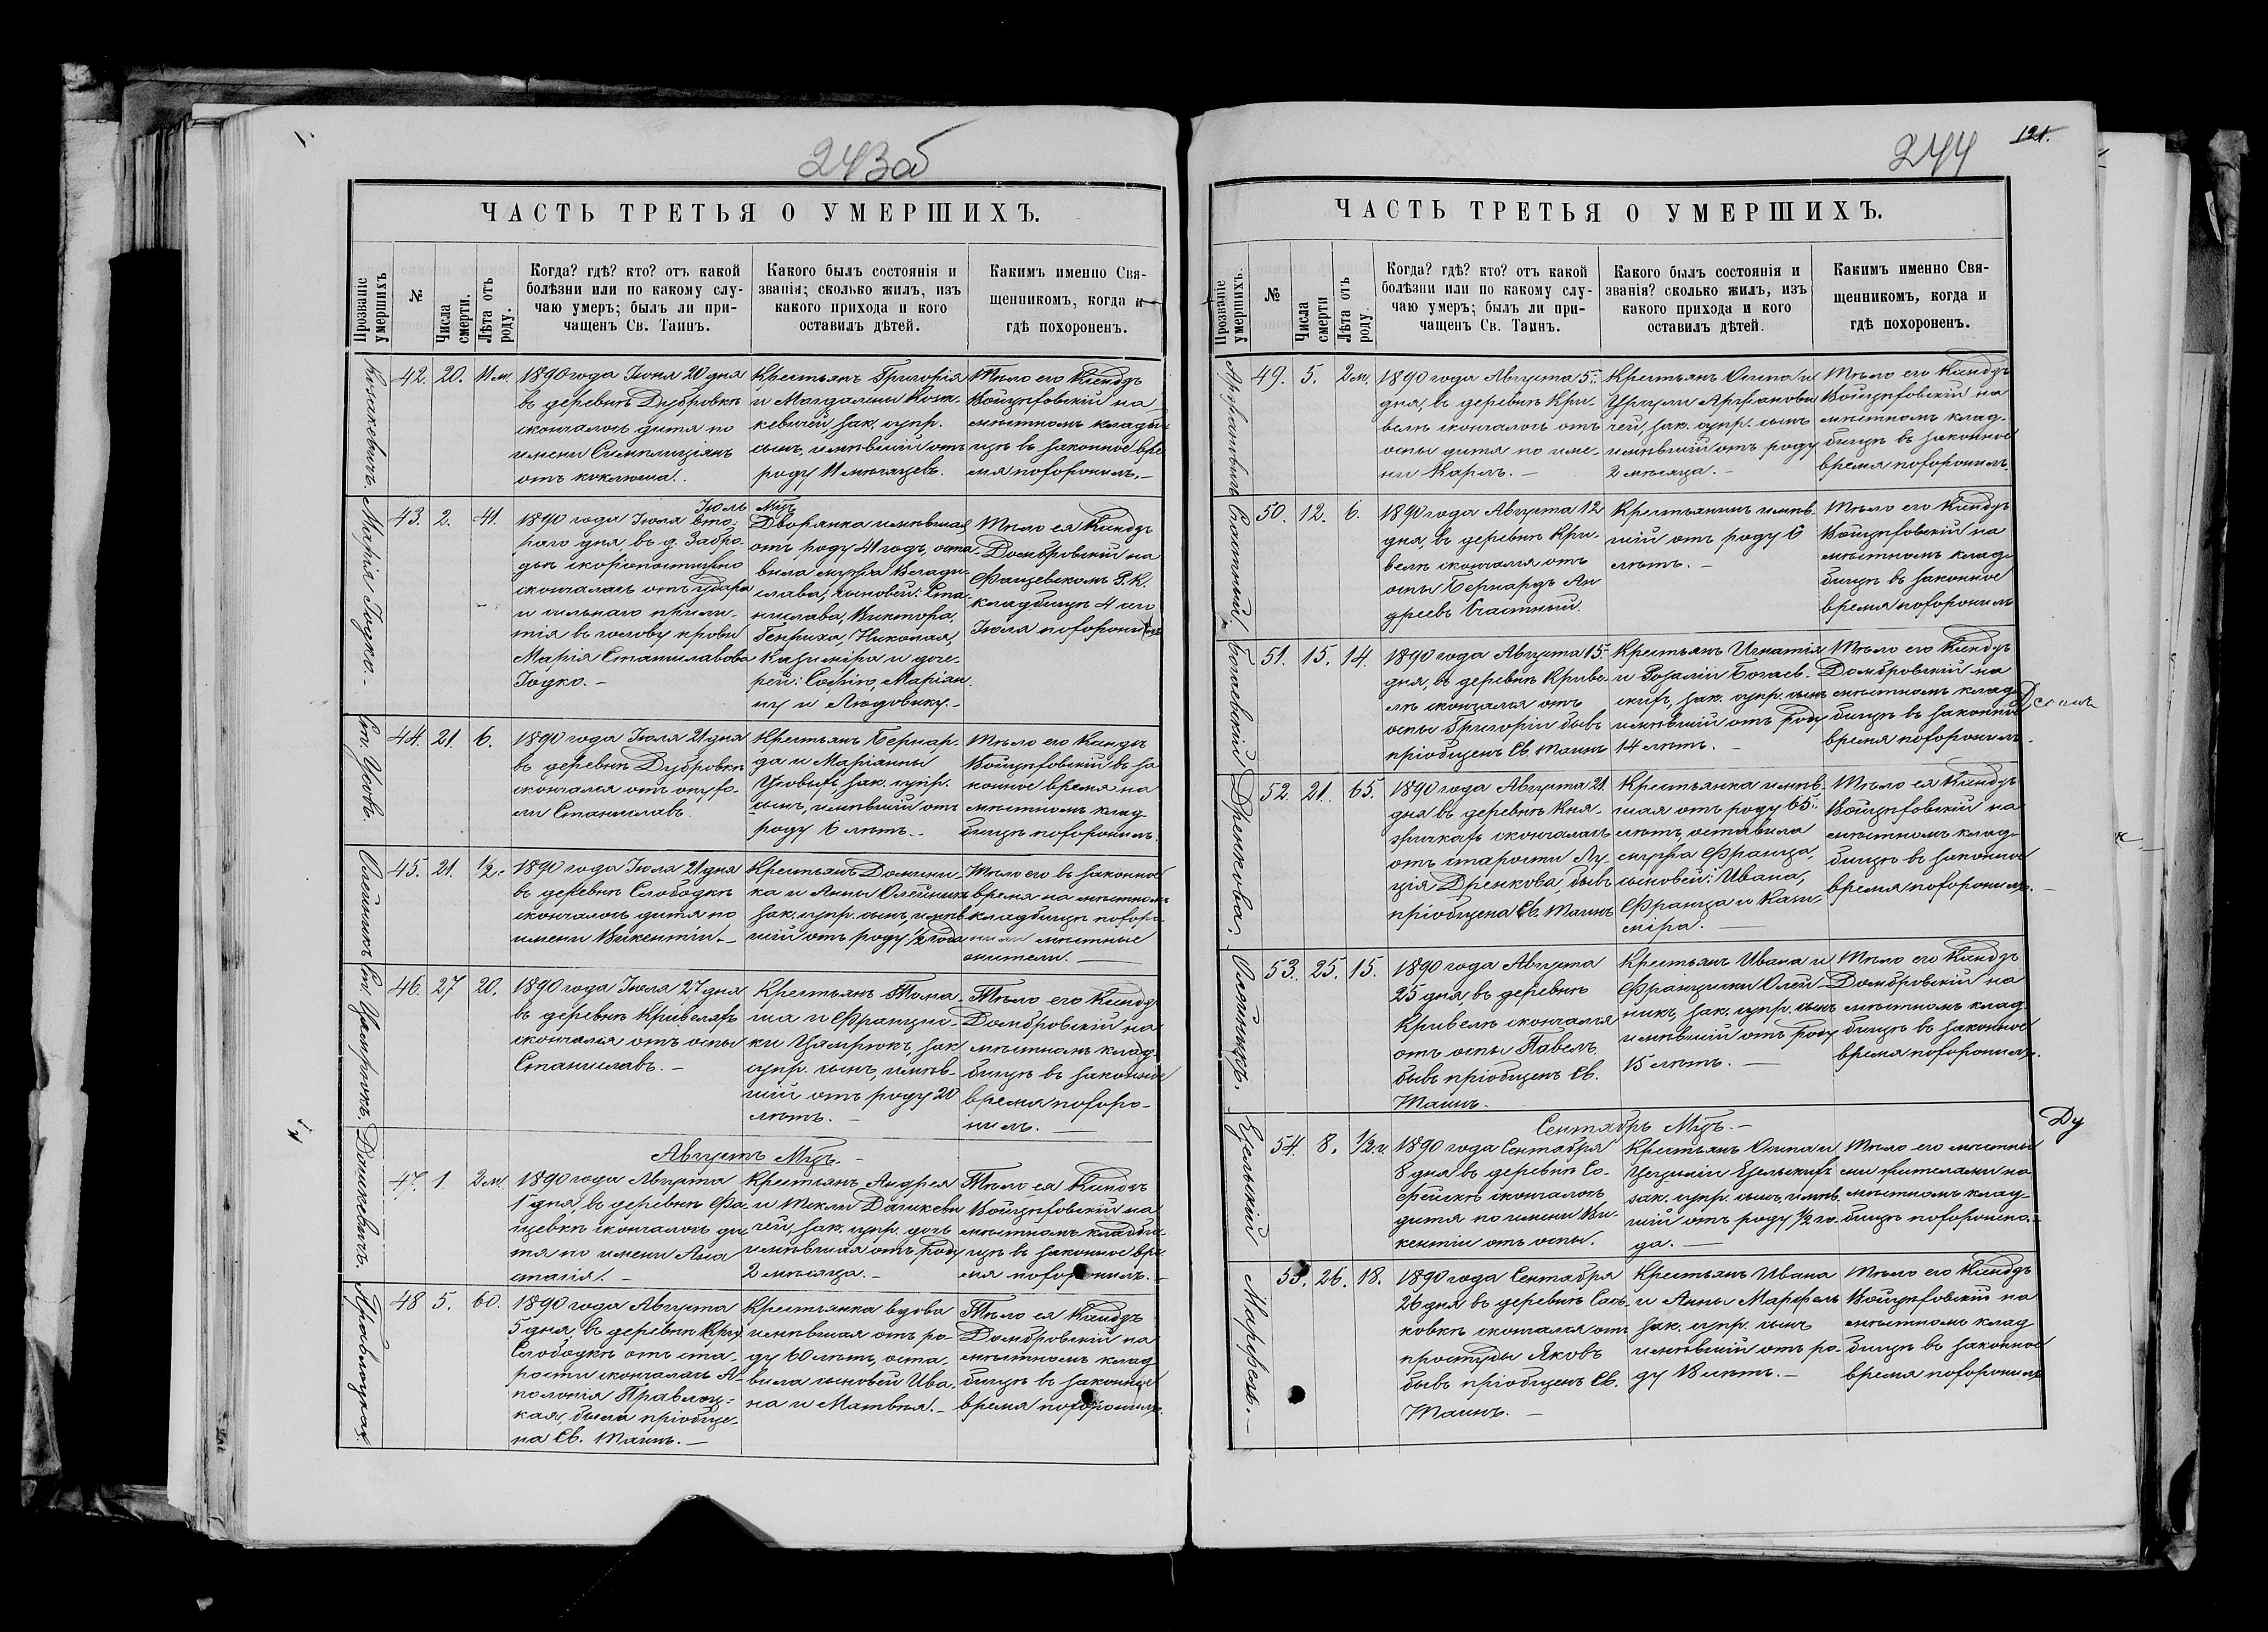 243об
ЧАСТЬ ТРЕТЬЯ О УМЕРШИХЪ.
Прозваніе умершихъ
№
Числа смерти.
Лѣта отъ роду.
Когда? гдѣ? кто? отъ какой
болѣзни или по какому слу-
чаю умеръ; былъ ли при-
чащенъ Св. Таинъ.
Какого былъ состоянія и
званія; сколько жилъ, изъ
какого прихода и кого
оставилъ дѣтей.
Какимъ именно Свя-
щенникомъ, когда и
гдѣ похороненъ.
42. 20. 11 м.
1890 года Іюня 20 дня
въ деревнѣ Дубровкѣ
скончалось дитя по
имени Симплиціянъ
отъ коклюша.
Крестьянъ Григорія
и Магдалины
кевичей, зак. супр.
сынъ, имѣвшій отъ
роду 11 мѣсяцевъ.
Тѣло его Ксендзъ
Войцѣховскій на
мѣстномъ кладби-
щѣ въ законное вре
мя похоронилъ.—
Марія Годко.—
43. 2. 41.
Іюль Мцъ
1890 года Іюля вто-
раго дня въ д. Забро-
дьѣ скоропостижно
скончалась отъ удара
и сильнаго прили-
тія въ голову крови
Марія Станиславова
Годко.—
Дворянка имѣвшая
отъ роду 41 годъ, оста-
вила мужа Влади-
слава; сыновей: Ста-
нислава, Виктора,
Генриха, Николая,
Казиміра и доче-
рей: Софію, Маріан
ну и Людовику.—
Тѣло ея Ксендзъ
Домбровскій на
Фащевскомъ Р. К.
кладбищѣ 4 сего
Іюля похоронилъ
44. 21. 6.
1890 года Іюля 21 дня
въ деревнѣ Дубровкѣ
скончался отъ опухо-
ли Станиславъ.
Крестьянъ Бернар-
да и Маріанны
зак. супр.
сынъ, имѣвшій отъ
роду 6 лѣтъ.—
Тѣло его Ксендзъ
Войцѣховскій въ за
конное время на
мѣстномъ клад-
бищѣ похоронилъ.
Олейникъ
45. 21. 1/2
1890 года Іюля 21 дня
въ деревнѣ Слободкѣ
скончалось дитя по
имени Викентій.—
Крестьянъ Домини-
ка и Анны Олейникъ
зак. супр. сынъ, имѣв
шій отъ роду 1/2 года
Тѣло его въ законное
время на мѣстномъ
кладбищѣ похоро
нили мѣстные
жители.—
46. 27 20.
1890 года Іюля 27 дня
въ деревнѣ Кривеляхъ
скончался отъ оспы
Станиславъ.—
Крестьянъ Тома-
ша и Франциш-
ки Цямрюкъ, зак
супр. сынъ, имѣв-
шій отъ роду 20
лѣтъ.—
Тѣло его Ксендзъ
Домбровскій на
мѣстномъ клад-
бищѣ въ законное
время похоро-
нилъ.—
Августъ Мцъ.—
Дашкевичъ.
47. 1. 2 м.
1890 года Августа
1 дня, въ деревнѣ Фа
щевкѣ скончалось ди
тя по имени Ана
стасія.—
Крестьянъ Андрея
и Теклы Дашкеви
чей, зак. супр. дочь
имѣвшая отъ роду
2 мѣсяца.—
Тѣло ея Ксендзъ
Войцѣховскій на
мѣстномъ кладби-
щѣ въ законное вре
мя похоронилъ.—
48 5. 60.
1890 года Августа
5 дня, въ деревнѣ Круг.
Слободкѣ отъ ста-
рости скончалась А-
полонія
кая, была пріобще-
на Св. Таинъ.—
Крестьянка вдова
имѣвшая отъ ро-
ду 60 лѣтъ, оста-
вила сыновей Ива-
на и Матвѣя.—
Тѣло ея Ксендзъ
Домбровскій на
мѣстномъ клад
бищѣ въ законное
время похоронилъ.
244
121.
ЧАСТЬ ТРЕТЬЯ О УМЕРШИХЪ.
Прозваніе умершихъ.
№
Числа смерти
Лѣта отъ роду.
Когда? гдѣ? кто? отъ какой
болѣзни или по какому слу-
чаю умеръ; былъ ли при-
чащенъ Св. Таинъ.
Какого былъ состоянія и
званія? сколько жилъ, изъ
какого прихода и кого
оставилъ дѣтей.
Какимъ именно Свя-
щенникомъ, когда и
гдѣ похороненъ.
49. 5. 2 м.
1890 года Августа 5
дня, въ деревнѣ Кри-
велѣ скончалось отъ
оспы дитя по име-
ни Карлъ.—
Крестьянъ Осипа и
Урсули Арханови
чей, зак. супр. сынъ
имѣвшій отъ роду
2 мѣсяца.—
Тѣло его Ксендзъ
Войцѣховскій на
мѣстномъ клад-
бищѣ въ законное
время похоронилъ.
Счастный.
50. 12. 6.
1890 года Августа 12
дня, въ деревнѣ Кри-
велѣ скончался отъ
оспы Бернардъ Ан
дреевъ Счастный.
Крестьянинъ имѣв-
шій отъ роду 6
лѣтъ.—
Тѣло его Ксендзъ
Войцѣховскій на
мѣстномъ клад-
бищѣ въ законное
время похоронилъ
Богаевскій
51. 15. 14.
1890 года Августа 15
дня, въ деревнѣ Криве-
лѣ скончался отъ
оспы Григорій бывъ
пріобщенъ Св. Таинъ
Крестьянъ Игнатія
и Розаліи Богаев-
скихъ, зак. супр. сынъ
имѣвшій отъ роду
14 лѣтъ.—
Тѣло его Ксендзъ
Домбровскій на
мѣстномъ клад-
бищѣ въ законное
время похоронилъ.
Дренкова.
52. 21. 65.
1890 года Августа 21
дня въ деревнѣ Кня-
зричкахъ скончалась
отъ старости Лу-
ція Дренкова, бывъ
пріобщена Св. Таинъ
Крестьянка имѣв-
шая отъ роду 65
лѣтъ, оставила
мужа Франца,
сыновей: Ивана,
Франца и Кази-
міра.—
Тѣло ея Ксендзъ
Войцѣховскій на
мѣстномъ клад-
бищѣ въ законное
время похоронилъ.—
Олейникъ.
53. 25. 15.
1890 года Августа
25 дня въ деревнѣ
Кривелѣ скончался
отъ оспы Павелъ,
бывъ пріобщенъ Св.
Таинъ.
Крестьянъ Ивана и
Францишки Олей-
никъ, зак. супр. сынъ
имѣвшій отъ роду
15 лѣтъ.—
Тѣло его Ксендзъ
Домбровскій на
мѣстномъ клад-
бищѣ въ законное
время похоронилъ.
Сентябрь Мцъ.—
Ду
54. 8. 1/2 г.
1890 года Сентября
8 дня въ деревнѣ Со-
фейскѣ скончалось
дитя по имени Ви-
кентій отъ оспы.
Крестьянъ Осипа и
Цециліи
зак. супр. сынъ, имѣв
шій отъ роду 1/2 го-
да.—
Тѣло его мѣстны
ми жителами на
мѣстномъ клад-
бищѣ похоронено.—
Марфель.—
55. 26. 18.
1890 года Сентября
26 дня въ деревнѣ Сась-
ковкѣ скончался отъ
простуды Яковъ
бывъ пріобщенъ Св.
Таинъ.—
Крестьянъ Ивана
и Анны Марфель
зак. супр. сынъ
имѣвшій отъ ро-
ду 18 лѣтъ.—
Тѣло его Ксендзъ
Войцѣховскій на
мѣстномъ клад
бищѣ въ законное
время похоронилъ